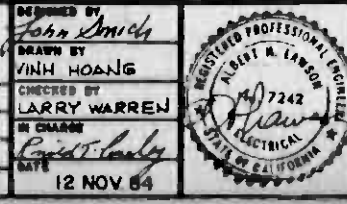 DESIGNED BY
John Smich
DRAWN BY
VINH HOANG
CHECKED BY
LARRY WARREN
IN CHARGE
DATE
12 NOV 84
REGISTERED PROFESSIONAL ENGINEER
ALBERT M. LAWSON
7242
ELECTRICAL
STATE OF CALIFORNIA